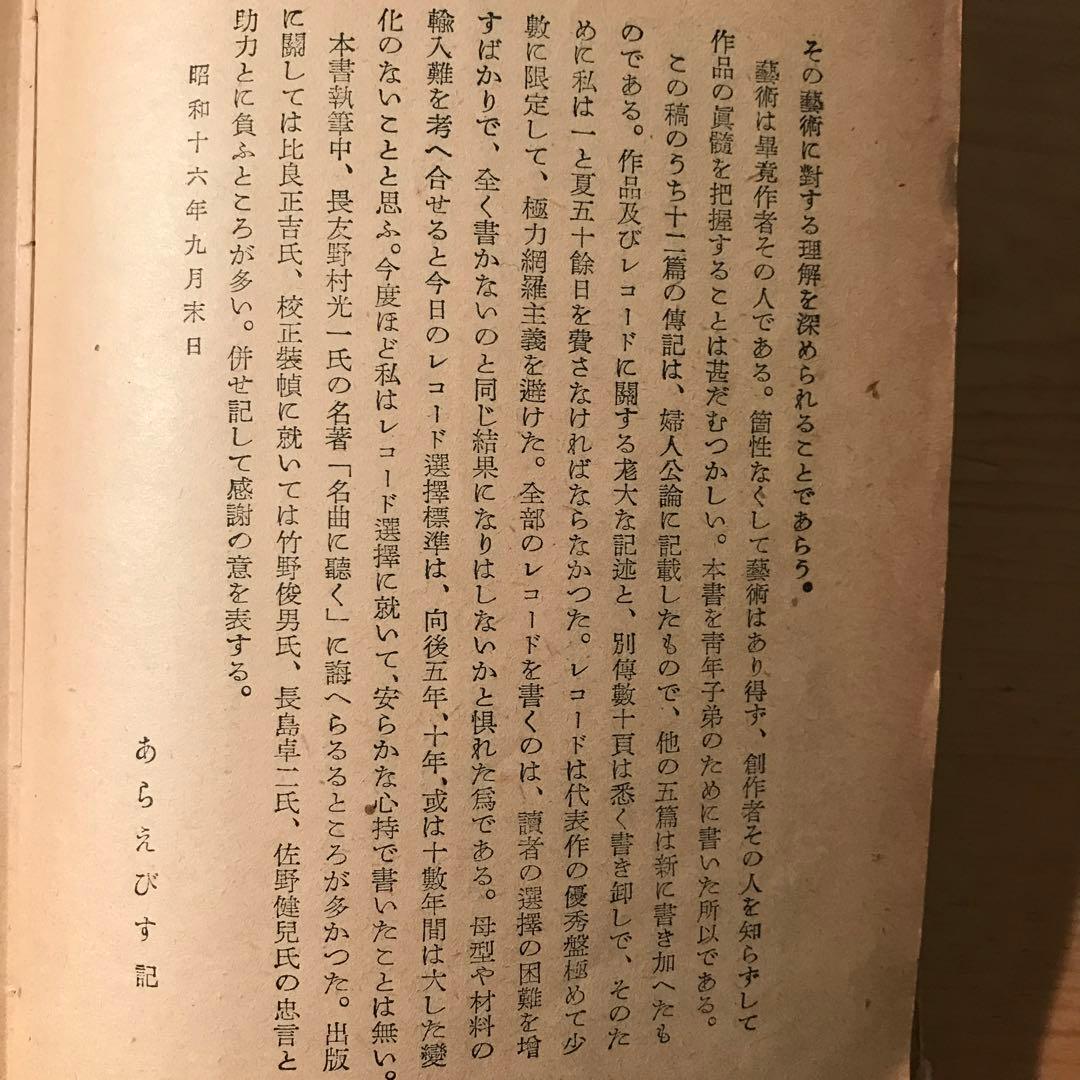 その藝術に對する理解を深められることであらう。
藝術は畢竟作者その人である。箇性なくして藝術はあり得ず、創作者その人を知らずして
作品の眞髓を把握することは甚だむつかしい。本書を靑年子弟のために書いた所以である。
この稿のうち十二篇の傳記は、婦人公論に記載したもので、他の五篇は新に書き加へたも
のである。作品及びレコードに關する尨大な記述と、別傳數十頁は悉く書き卸しで、そのた
めに私は一と夏五十餘日を費さなければならなかつた。レコードは代表作の優秀盤極めて少
數に限定して、極力網羅主義を避けた。全部のレコードを書くのは、讀者の選擇の困難を增
すばかりで、全く書かないのと同じ結果になりはしないかと惧れた爲である。母型や材料の
輸入難を考へ合せると今日のレコード選擇標準は、向後五年、十年、或は十數年間は大した變
化のないことと思ふ。今度ほど私はレコード選擇に就いて、安らかな心持で書いたことは無い。
本書執筆中、畏友野村光一氏の名著「名曲に聽く」に誨へらるるところが多かつた。出版
に關しては比良正吉氏、校正裝幀に就いては竹野俊男氏、長島卓二氏、佐野健兒氏の忠言と
助力とに負ふところが多い。併せ記して感謝の意を表する。
昭和十六年九月末日
あらえびす記